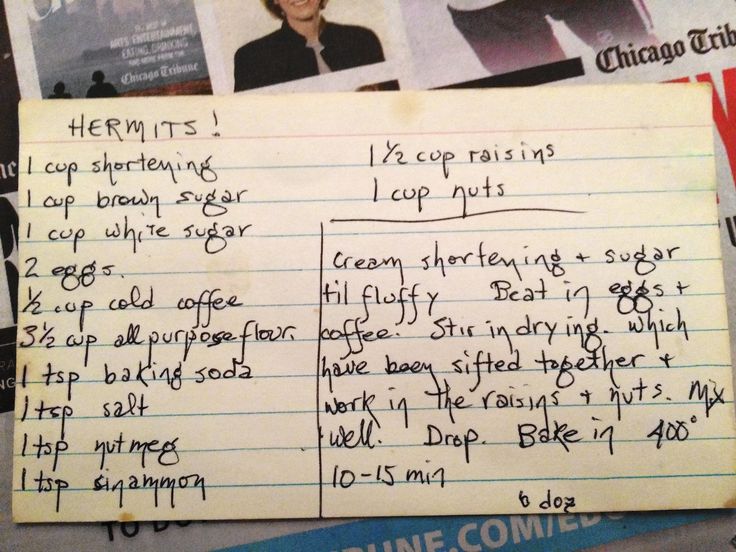 ARTS, ENTERTAINMENT,
EATING, DRINKING
AND MORE FROM THE
Chicago Tribune
Chicago Trib
HERMITS!
1 cup shortening
1 cup brown sugar
1 cup white sugar
2 eggs.
½ cup cold coffee
3½ cup all purpose flour.
1 tsp baking soda
1 tsp salt
1 tsp nutmeg
1 tsp sinammon
1 ½ cup raisins
1 cup nuts
Cream shortening + sugar
til fluffy Beat in eggs +
coffee. Stir in dry ing. which
have been sifted together +
work in the raisins + nuts. Mix
well. Drop. Bake in 400°
10-15 min
6 doz
TO DO
TRIBUNE.COM/